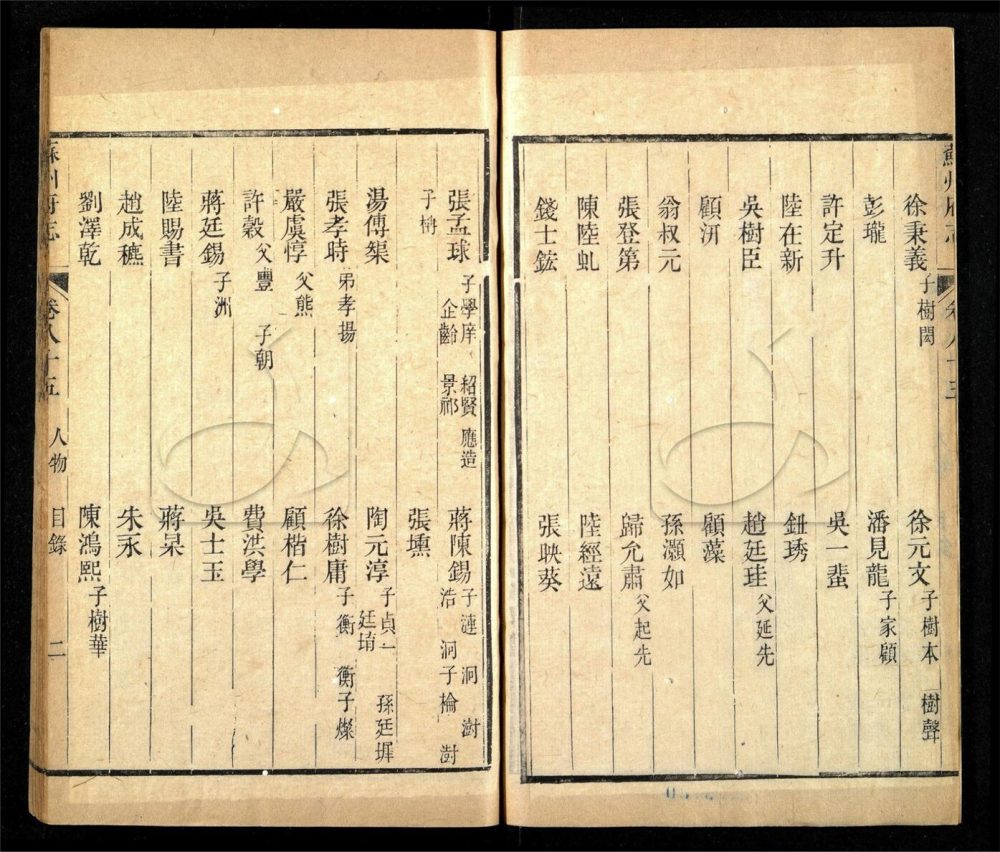 徐秉義子樹閎 徐元文子樹本 樹聲
彭瓏 潘見龍子家顧
許定升 吳一蜚
陸在新 鈕琇
吳樹臣 趙廷珪父延先
顧汧 顧藻
翁叔元 孫灝如
張登第 歸允肅父起先
陳陸虬 陸經遠
錢士鋐 張映葵
張孟球子學庠 紹賢 應造 企齡 景祁 蔣陳錫子漣 泂 澍 浩 泂子檢 澍
子栴 張壎
湯傳榘 陶元淳子貞一 孫廷墀 廷堉
張孝時弟孝揚 徐樹庸子衡 衡子燦
嚴虞惇父熊 顧楷仁
許縠父豐 子朝 費洪學
蔣廷錫子洲 吳士玉
陸賜書 蔣杲
趙成穮 朱永
劉澤乾 陳鴻熙子樹華
蘇州府志 卷八十五 人物 目錄 二